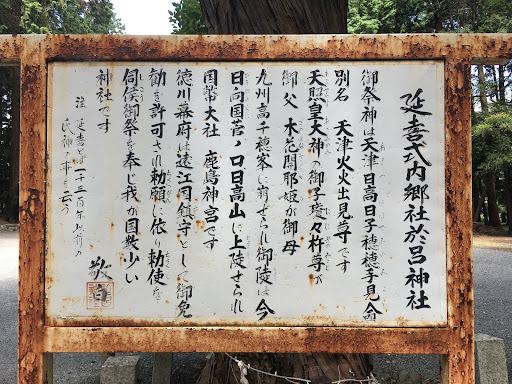 延喜式内郷社於呂神社
御祭神は天津日高日子穂穂手見命
別名 天津火火出見尊です
天照皇大神の御子瓊々杵尊が
御父 木花開耶姫が御母
九州高千穂家に崩ぜられ御陵は今
日向国官ノ口日高山に上陵せられ
国幣大社 鹿島神宮です
徳川幕府は遠江国鎮守として御免
勅を許可され勅願に依り勅使
伺侯御祭を奉じ我が国数少い
神社です
敬白
注 延喜とは一千三百年以前の
氏神の事を云う